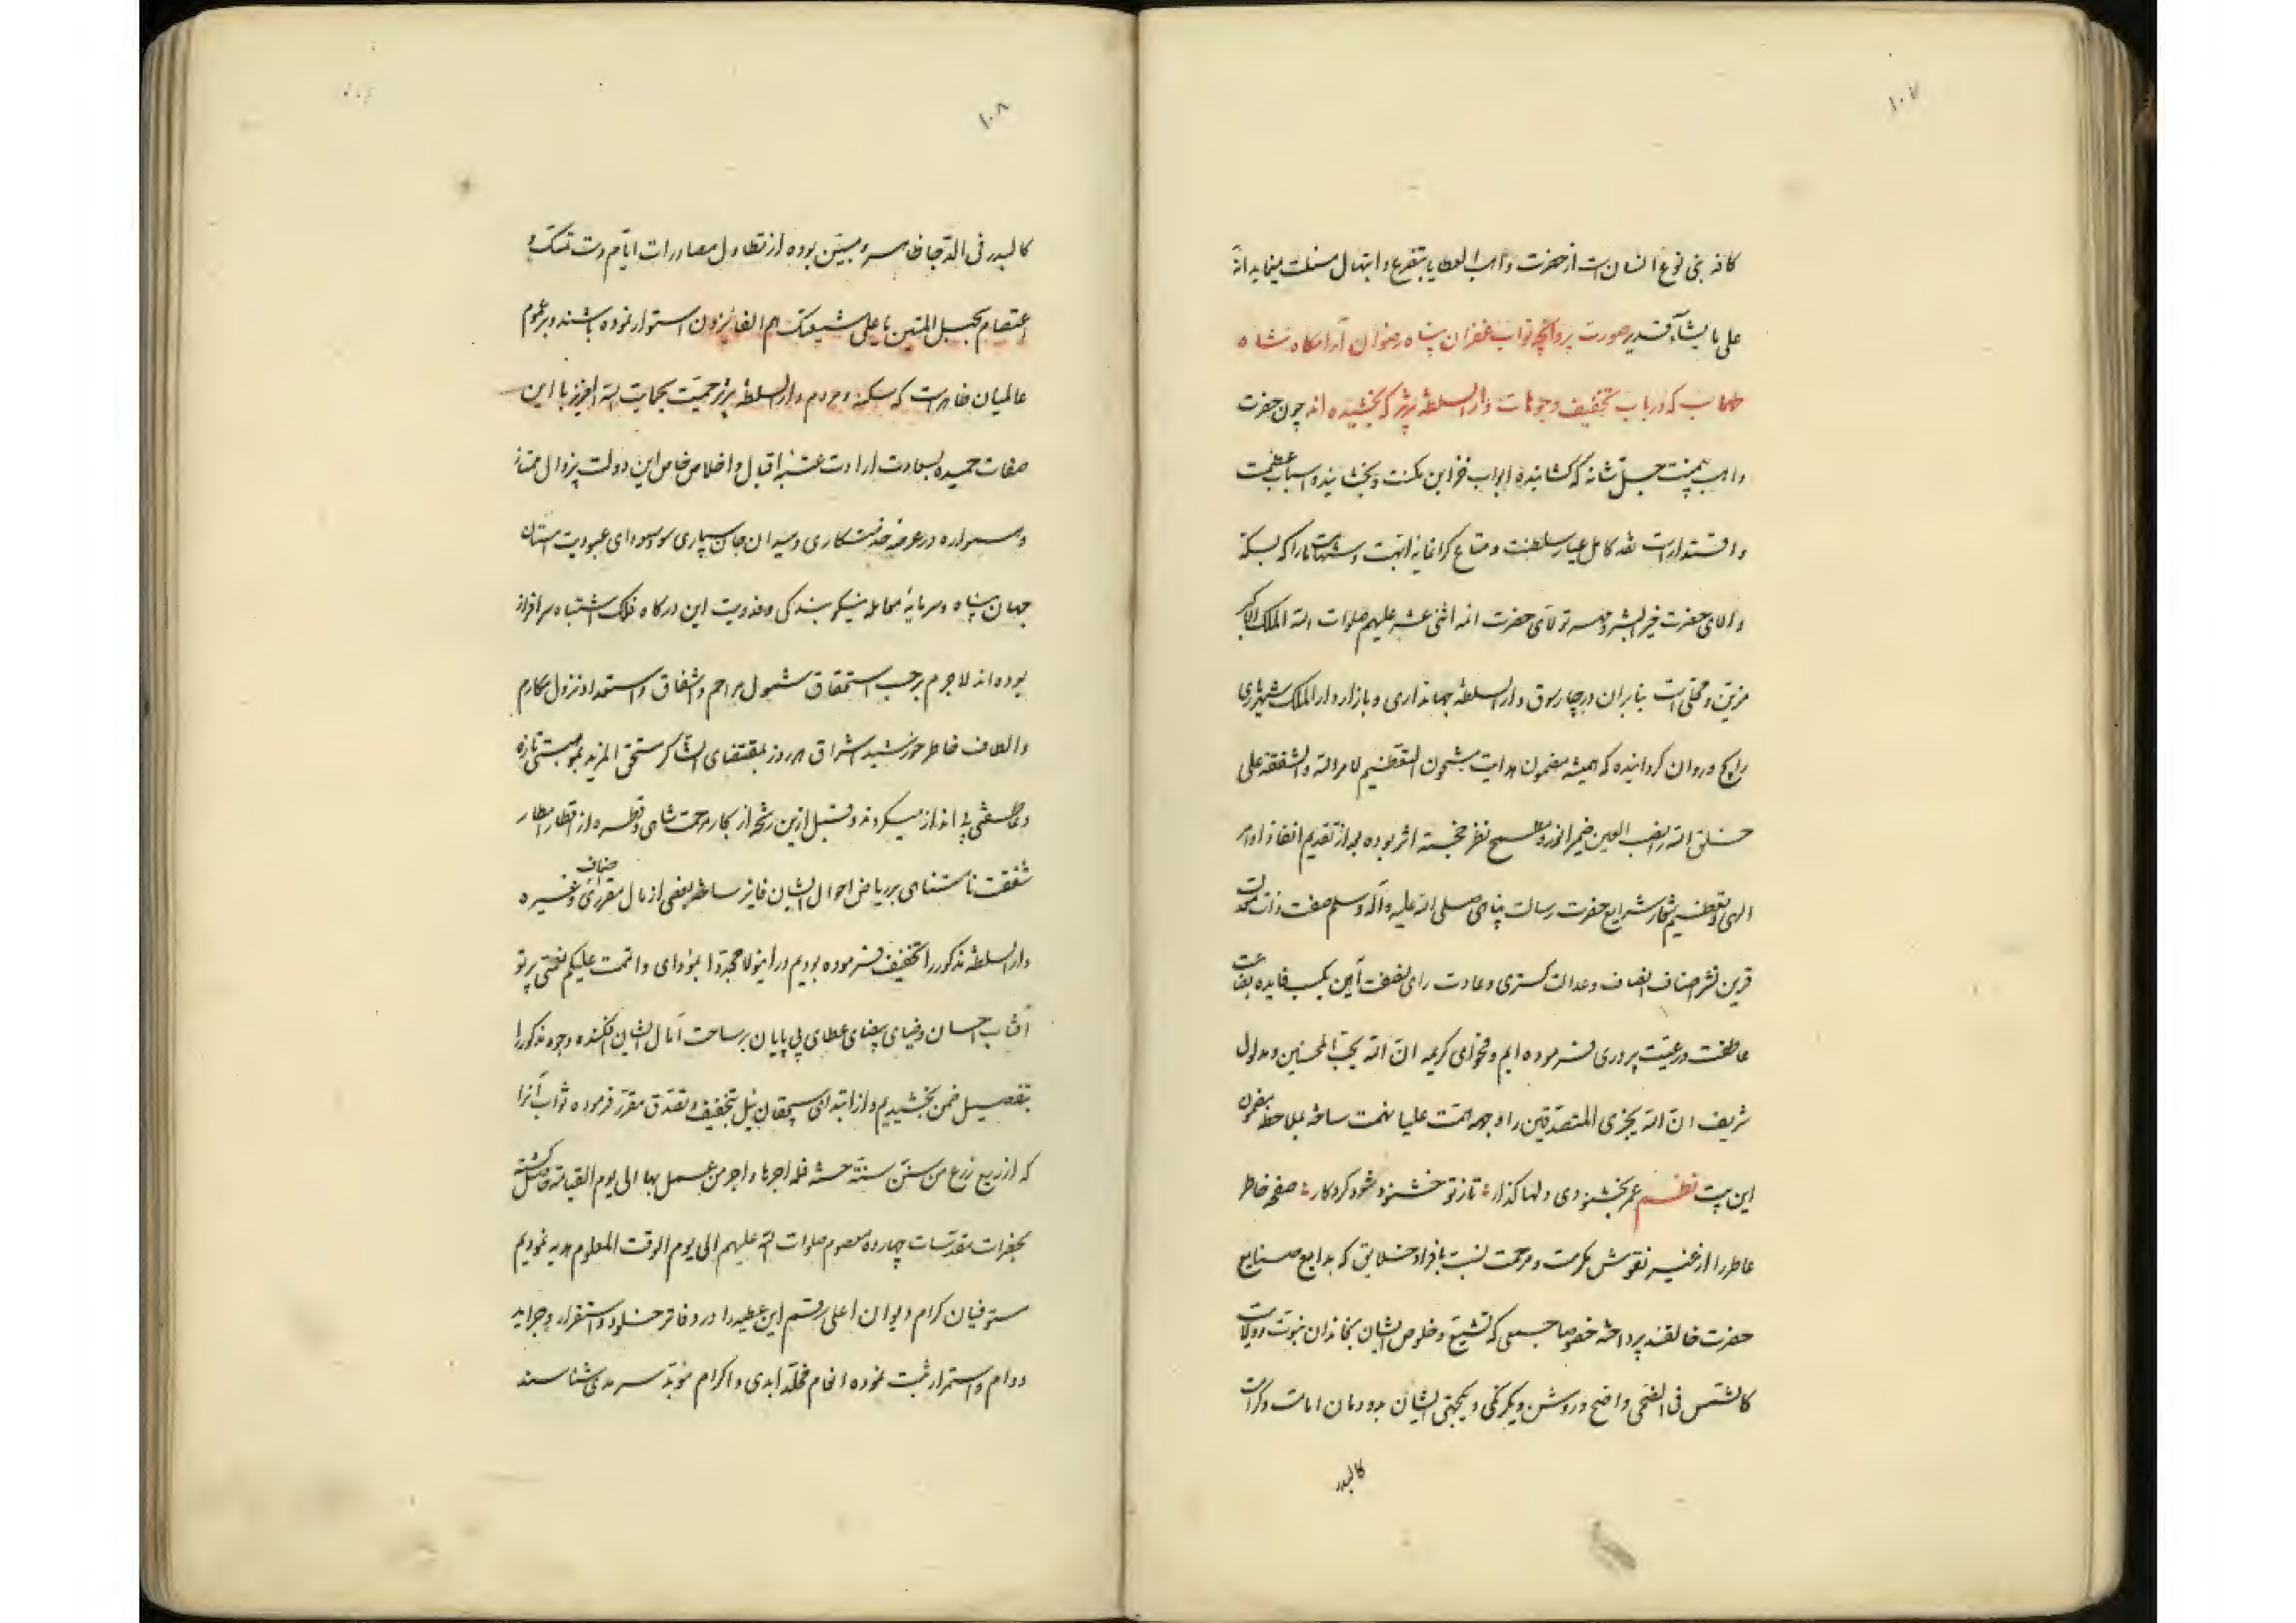 ۱۰۷
کافه بنی نوع انسان است از حضرت واهب العطایا بتضرع و ابتهال مسئلت مینماید انه
علی ما یشاء قدیر صورت پروانچه نواب غفران پناه رضوان آرامگاه شاه
طهماسب که در باب تخفیف وجوهات دار السلطنه تبریز که بخشیده‌اند چون حضرت
واهب بیمنت جل شانه که گشاینده ابواب خزاین مکنت و بخشاینده اسباب عظمت
و اقتدار است نقد کامل عیار سلطنت و متاع گرانمایه ابهت و شهامت ما را که بسکه
والای حضرت خیر البشر و مهر تولای حضرت ائمه اثنی عشر علیهم صلوات الله الملک الاکبر
مزین و محلی است بنابران در چارسوق دار السلطنه جهانداری و بازار دار الملک شهریاری
رایج و روان گردانیده که همیشه مضمون هدایت مشحون التعظیم لامر الله و الشفقة علی
خلق الله نصب العین ضمیر انور و مطمح نظر خجسته اثر بوده بعد از تقدیم انفاذ اوامر
الهی و تعظیم شعار شرایع حضرت رسالت پناهی صلی الله علیه و آله و سلم صفت ذات معدلت
قرین نشر اصناف انصاف و عدالت گستری و عادت رای نصفت آیین بکسب فایده بضاعت
عاطفت و رعیت پروری فرموده‌ایم و فحوای کریمه ان الله یحب المحسنین و مدلول
شریف ان الله یجزی المتصدقین را وجهه همت علیا نهمت ساخته بملاحظه مضمون
این بیت نظم عمر بخشنودی دلها گذار تا ز تو خشنود شود کردگار صفحه خاطر
عاطر را از غیر نقوش مکرمت و مرحمت نسبت بافراد خلایق که بدایع صنایع
حضرت خالقند پرداخته خصوصا جمعی که تشیع و خلوص ایشان بخاندان نبوت و ولایت
کالشمس فی الضحی واضح و روشن و یکرنگی و یکجهتی ایشان بدودمان امامت و کرامت
کالبدر
۱۰۸
کالبدر فی الدجا ظاهر و مبین بوده از تطاول مصادرات ایام دست تمسک و
اعتصام بحبل المتین یا علی شیعتک هم الفائزون استوار نموده باشند و بر عموم
عالمیان ظاهر است که سکنه و مردم دار السلطنه تبریز حمیت بحمایت الله العزیز با این
صفات حمیده بسعادت ارادت عتبه اقبال و اخلاص خاص این دولت بیزوال ممتاز
و همواره در عرصه خدمتکاری و میدان جان سپاری سودای عبودیت آستان
جهان پناه و سرمایه معامله نیکو بندگی و فدویت این درگاه فلک اشتباه سرافراز
بوده‌اند لاجرم بر حسب استحقاق شمول مراحم و اشفاق و استعداد نزول مکارم
و الطاف خاطر خورشید اشراق هر روز بمقتضای الشاکر مستحق المزید بموهبتی تازه
و عاطفتی بی اندازه میگردند و قبل ازین رشحه از بحار مرحمت شاهی و قطره از اقطار امطار
شفقت نامتناهی بر ریاض احوال ایشان فایز ساخته بعضی از مال مقرری اصناف و غیره
دار السلطنه مذکور را تخفیف فرموده بودیم درینولا مجددا بمؤدای و اتممت علیکم نعمتی پرتو
آفتاب احسان و ضیای بیضای عطای بی پایان بر ساحت آمال ایشان افکنده وجوه مذکور را
بتفصیل ضمن بخشیدیم و از ابتدای سیچقان ئیل بتخفیف و تصدق مقرر فرموده ثواب آنرا
که از ریع زرع من سن سنة حسنة فله اجرها و اجر من عمل بها الی یوم القیامه حاصل گشته
بحضرات مقدسات چهارده معصوم صلوات الله علیهم الی یوم الوقت المعلوم هدیه نمودیم
مستوفیان کرام دیوان اعلی رقم این عطیه را در دفاتر خلود و استقرار و جراید
دوام و استمرار ثبت نموده انعام مخلد ابدی و اکرام مؤبد سرمدی شناسند